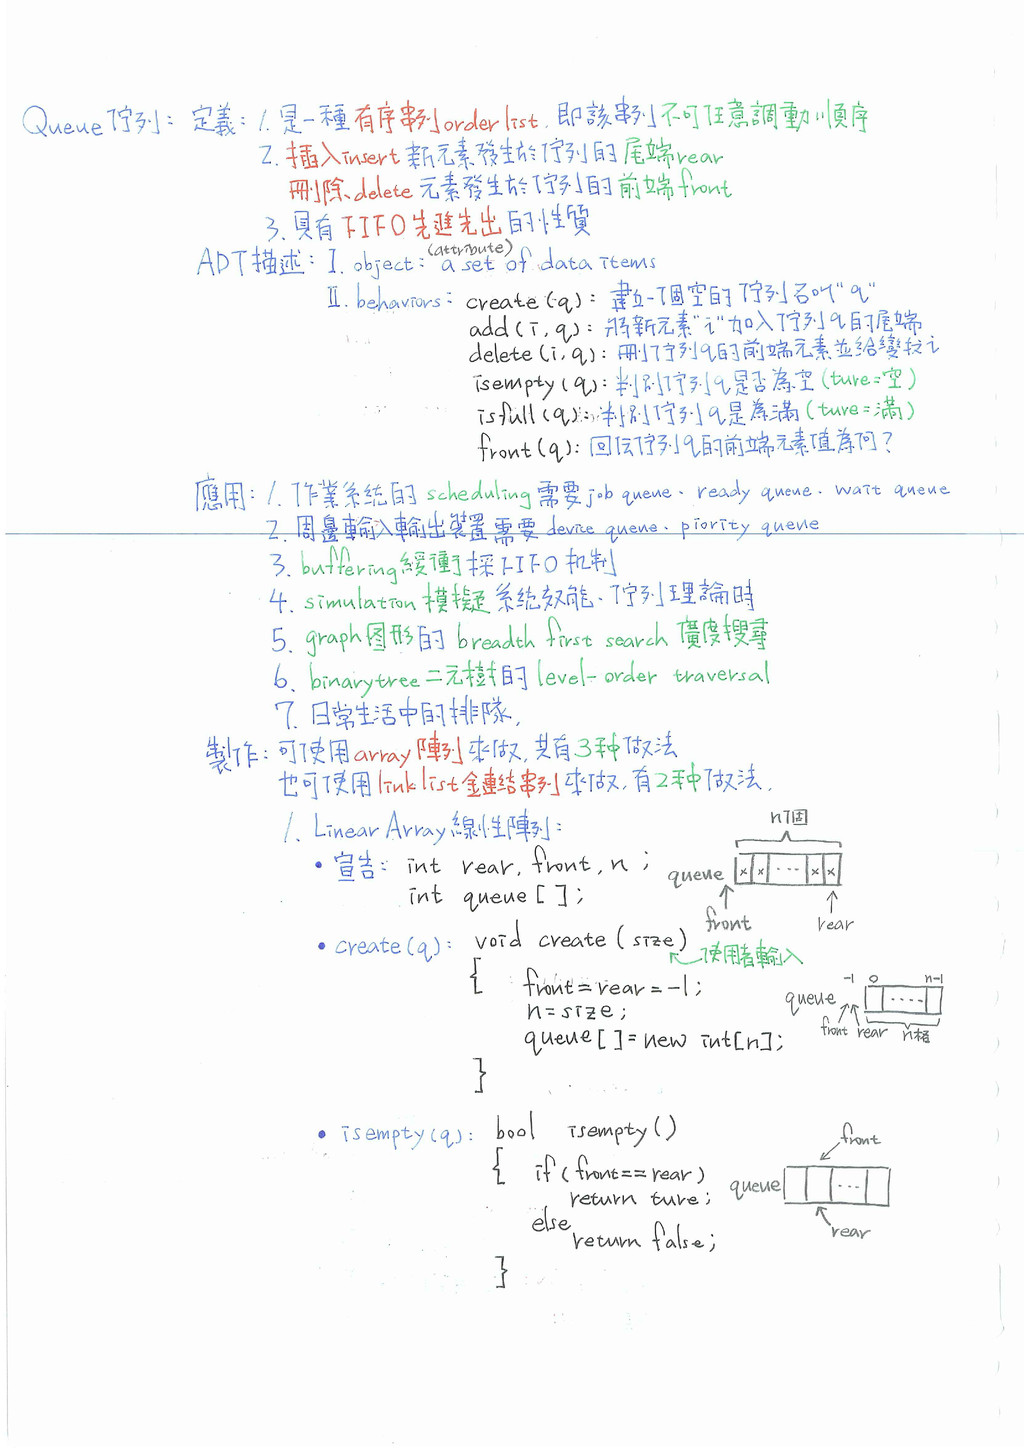 Queue 佇列: 定義: 1. 是一種有序串列order list. 即該串列不可任意調動順序
2. 插入insert新元素發生於佇列的尾端rear
刪除delete元素發生於佇列的前端front
3. 具有FIFO先進先出的性質
ADT描述: I. object: (attribute) a set of data items
II. behaviors: create(q): 建立一個空的佇列名叫"q"
add(i,q): 將新元素"i"加入佇列q的尾端
delete(i,q): 刪佇列q的前端元素並給變數i
isempty(q): 判別佇列q是否為空(ture=空)
isfull(q): 判別佇列q是為滿(ture=滿)
front(q): 回傳佇列q的前端元素值為何?
應用: 1. 作業系統的 scheduling需要job queue、ready queue、wait queue
2. 周邊輸入輸出裝置需要 device queue、piority queue
3. buffering緩衝採FIFO机制
4. simulation模擬系統效能、佇列理論時
5. graph图形的 breadth first search 廣度搜尋
6. binarytree二元樹的level-order traversal
7. 日常生活中的排隊.
製作: 可使用array陣列來做, 共有3种做法
也可使用link list鏈結串列來做, 有2种做法.
1. Linear Array線性陣列:
n個
• 宣告: int rear, front, n ;
queue x x ... x x
int queue [ ];
front rear
• create(q): void create (size)
使用者輸入
{ front=rear=-1;
-1 0 n-1
queue ....
n=size;
front rear n格
queue[ ]=new int[n];
}
• isempty(q): bool isempty()
front
{ if(front==rear)
queue ...
return ture;
else
rear
return false;
}